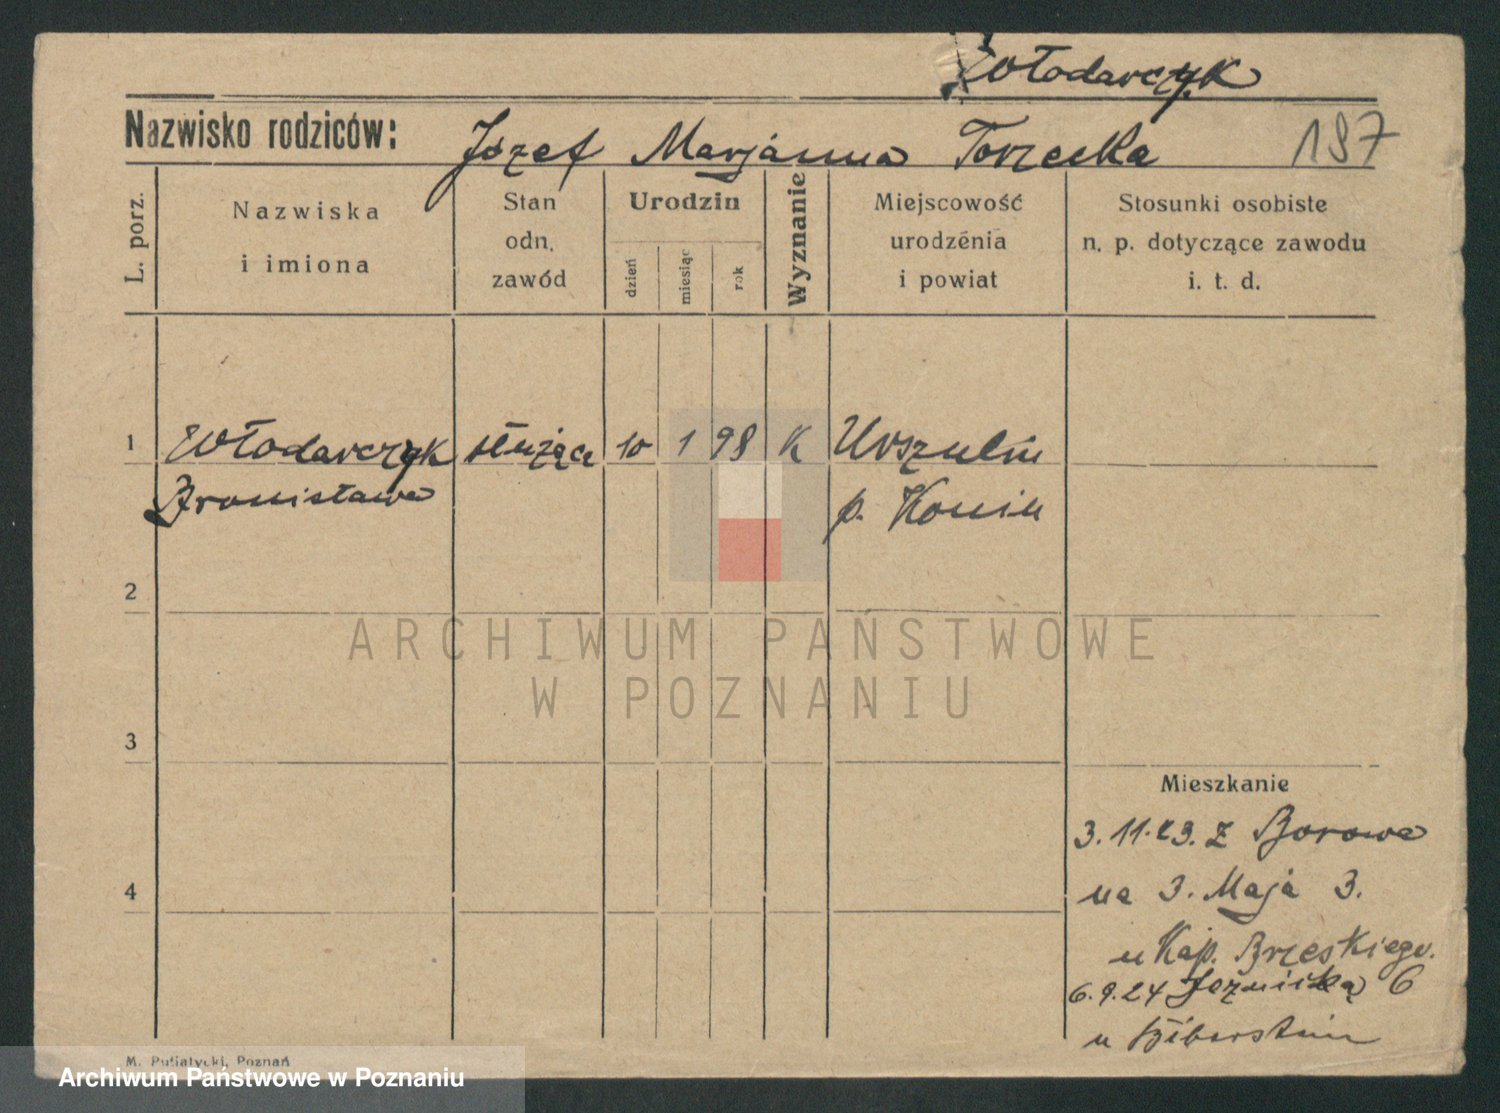 Włodarczyk
Nazwisko rodziców: Józef Marjanna Torzecka 197
L. porz.
Nazwiska
i imiona
Stan
odn.
zawód
Urodzin
dzień
miesiąc
rok
Wyznanie
Miejscowość
urodzenia
i powiat
Stosunki osobiste
n. p. dotyczące zawodu
i. t. d.
1 Włodarczyk służąca 10 1 98 K Urszulin
Bronisława p. Konin
2
ARCHIWUM PAŃSTWOWE
W POZNANIU
3
Mieszkanie
3.11.23. z Borowa
4
na 3. Maja 3.
u Kap. Brzeskiego.
6.9.24 6
u
M. Putiatycki, Poznań
Archiwum Państwowe w Poznaniu